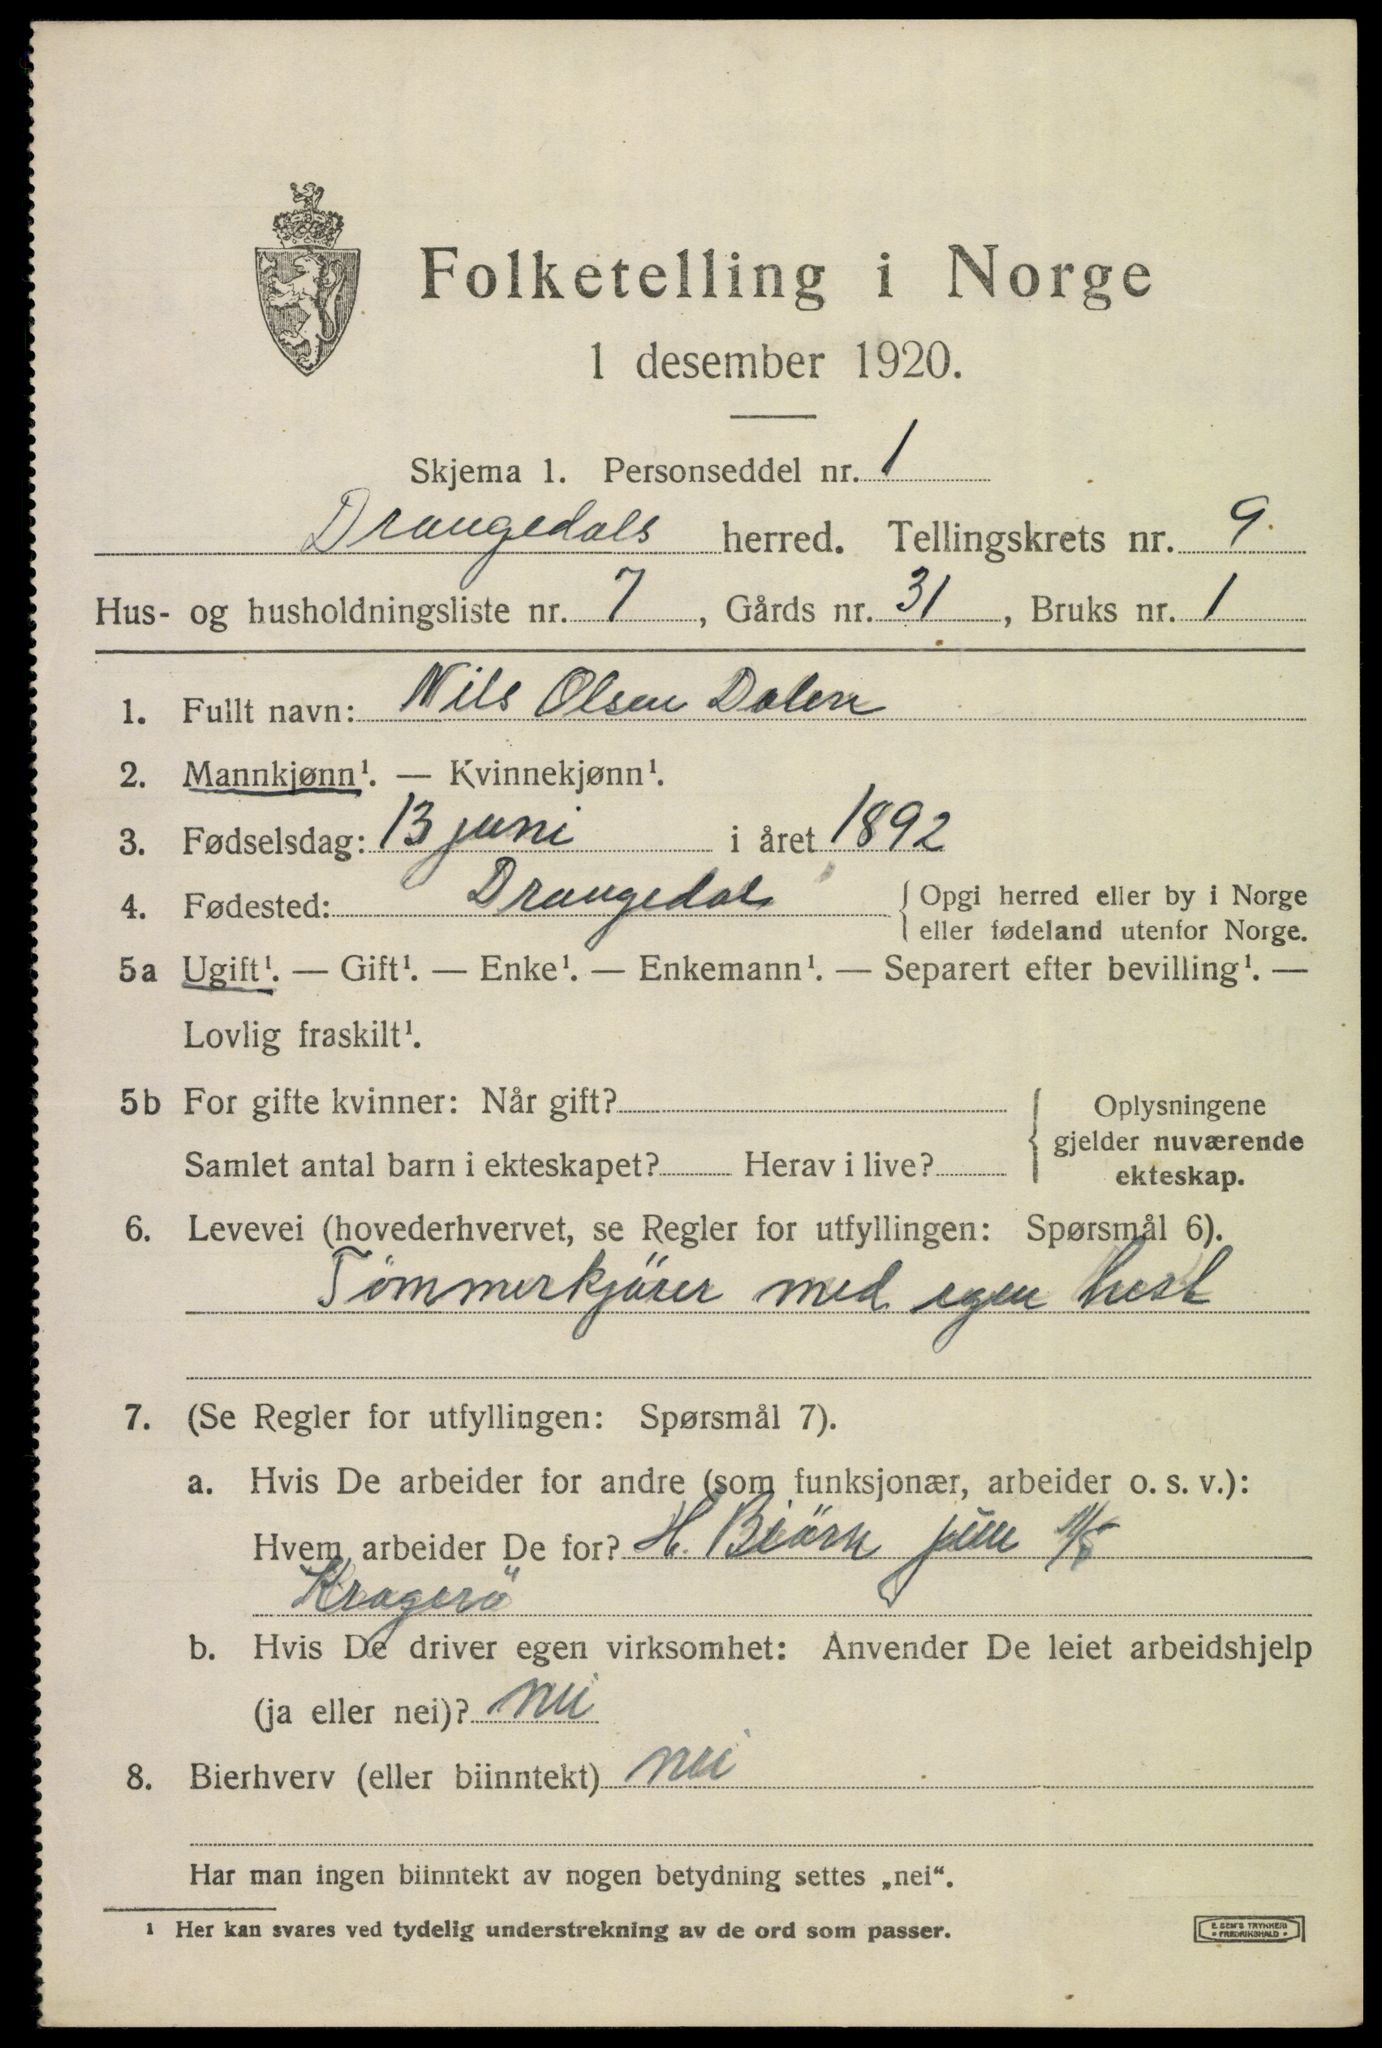 Folketelling i Norge
1 desember 1920.
Skjema 1. Personseddel nr. 1
Drangedals herred. Tellingskrets nr. 9
Hus- og husholdningsliste nr. 7, Gårds nr. 31, Bruks nr. 1
1. Fullt navn: Nils Olsen Dalen
2. Mannkjønn¹. — Kvinnekjønn¹.
3. Fødselsdag: 13 juni i året 1892
4. Fødested: Drangedal { Opgi herred eller by i Norge
eller fødeland utenfor Norge.
5a Ugift¹. — Gift¹. — Enke¹. — Enkemann¹. — Separert efter bevilling¹. —
Lovlig fraskilt¹.
5b For gifte kvinner: Når gift?
Samlet antal barn i ekteskapet? Herav i live?
Oplysningene
gjelder nuværende
ekteskap.
6. Levevei (hovederhvervet, se Regler for utfyllingen: Spørsmål 6).
Tömmerkjörer med egen hest
7. (Se Regler for utfyllingen: Spørsmål 7).
a. Hvis De arbeider for andre (som funksjonær, arbeider o. s. v.):
Hvem arbeider De for? H. Biörn jun A/S
Kragerö
b. Hvis De driver egen virksomhet: Anvender De leiet arbeidshjelp
(ja eller nei)? nei
8. Bierhverv (eller biinntekt) nei
Har man ingen biinntekt av nogen betydning settes „nei“.
¹ Her kan svares ved tydelig understrekning av de ord som passer.
E. SEM'S TRYKKERI
FREDRIKSHALD